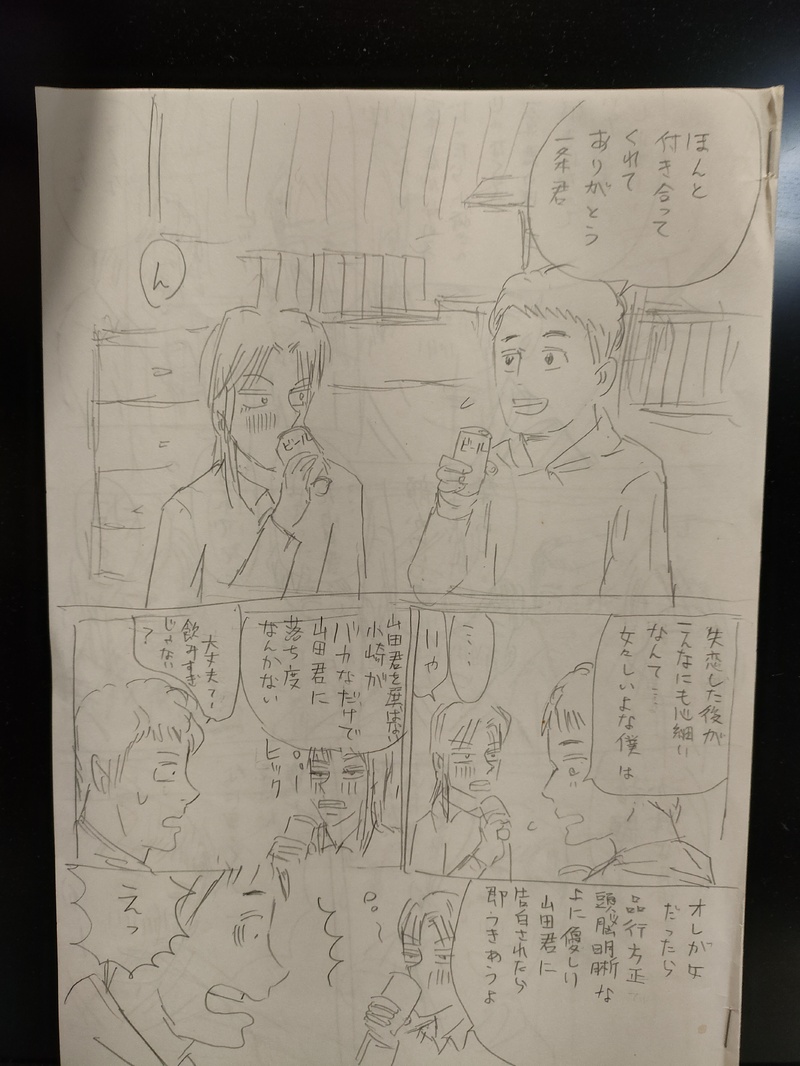 ほんと
付き合って
くれて
ありがとう
一条君
ん
ビール
ビール
失恋した後が
こんなにも心細い
なんて…
女々しいよな僕は
……
いや
山田君を選ばない
小崎が
バカなだけで、
山田君に
落ち度
なんかない
ヒック
大丈夫?
飲みすぎ
じゃない
?
オレが女
だったら
品行方正
頭脳明晰な
上に優しい
山田君に
告白されたら
即つきあうよ
えっ